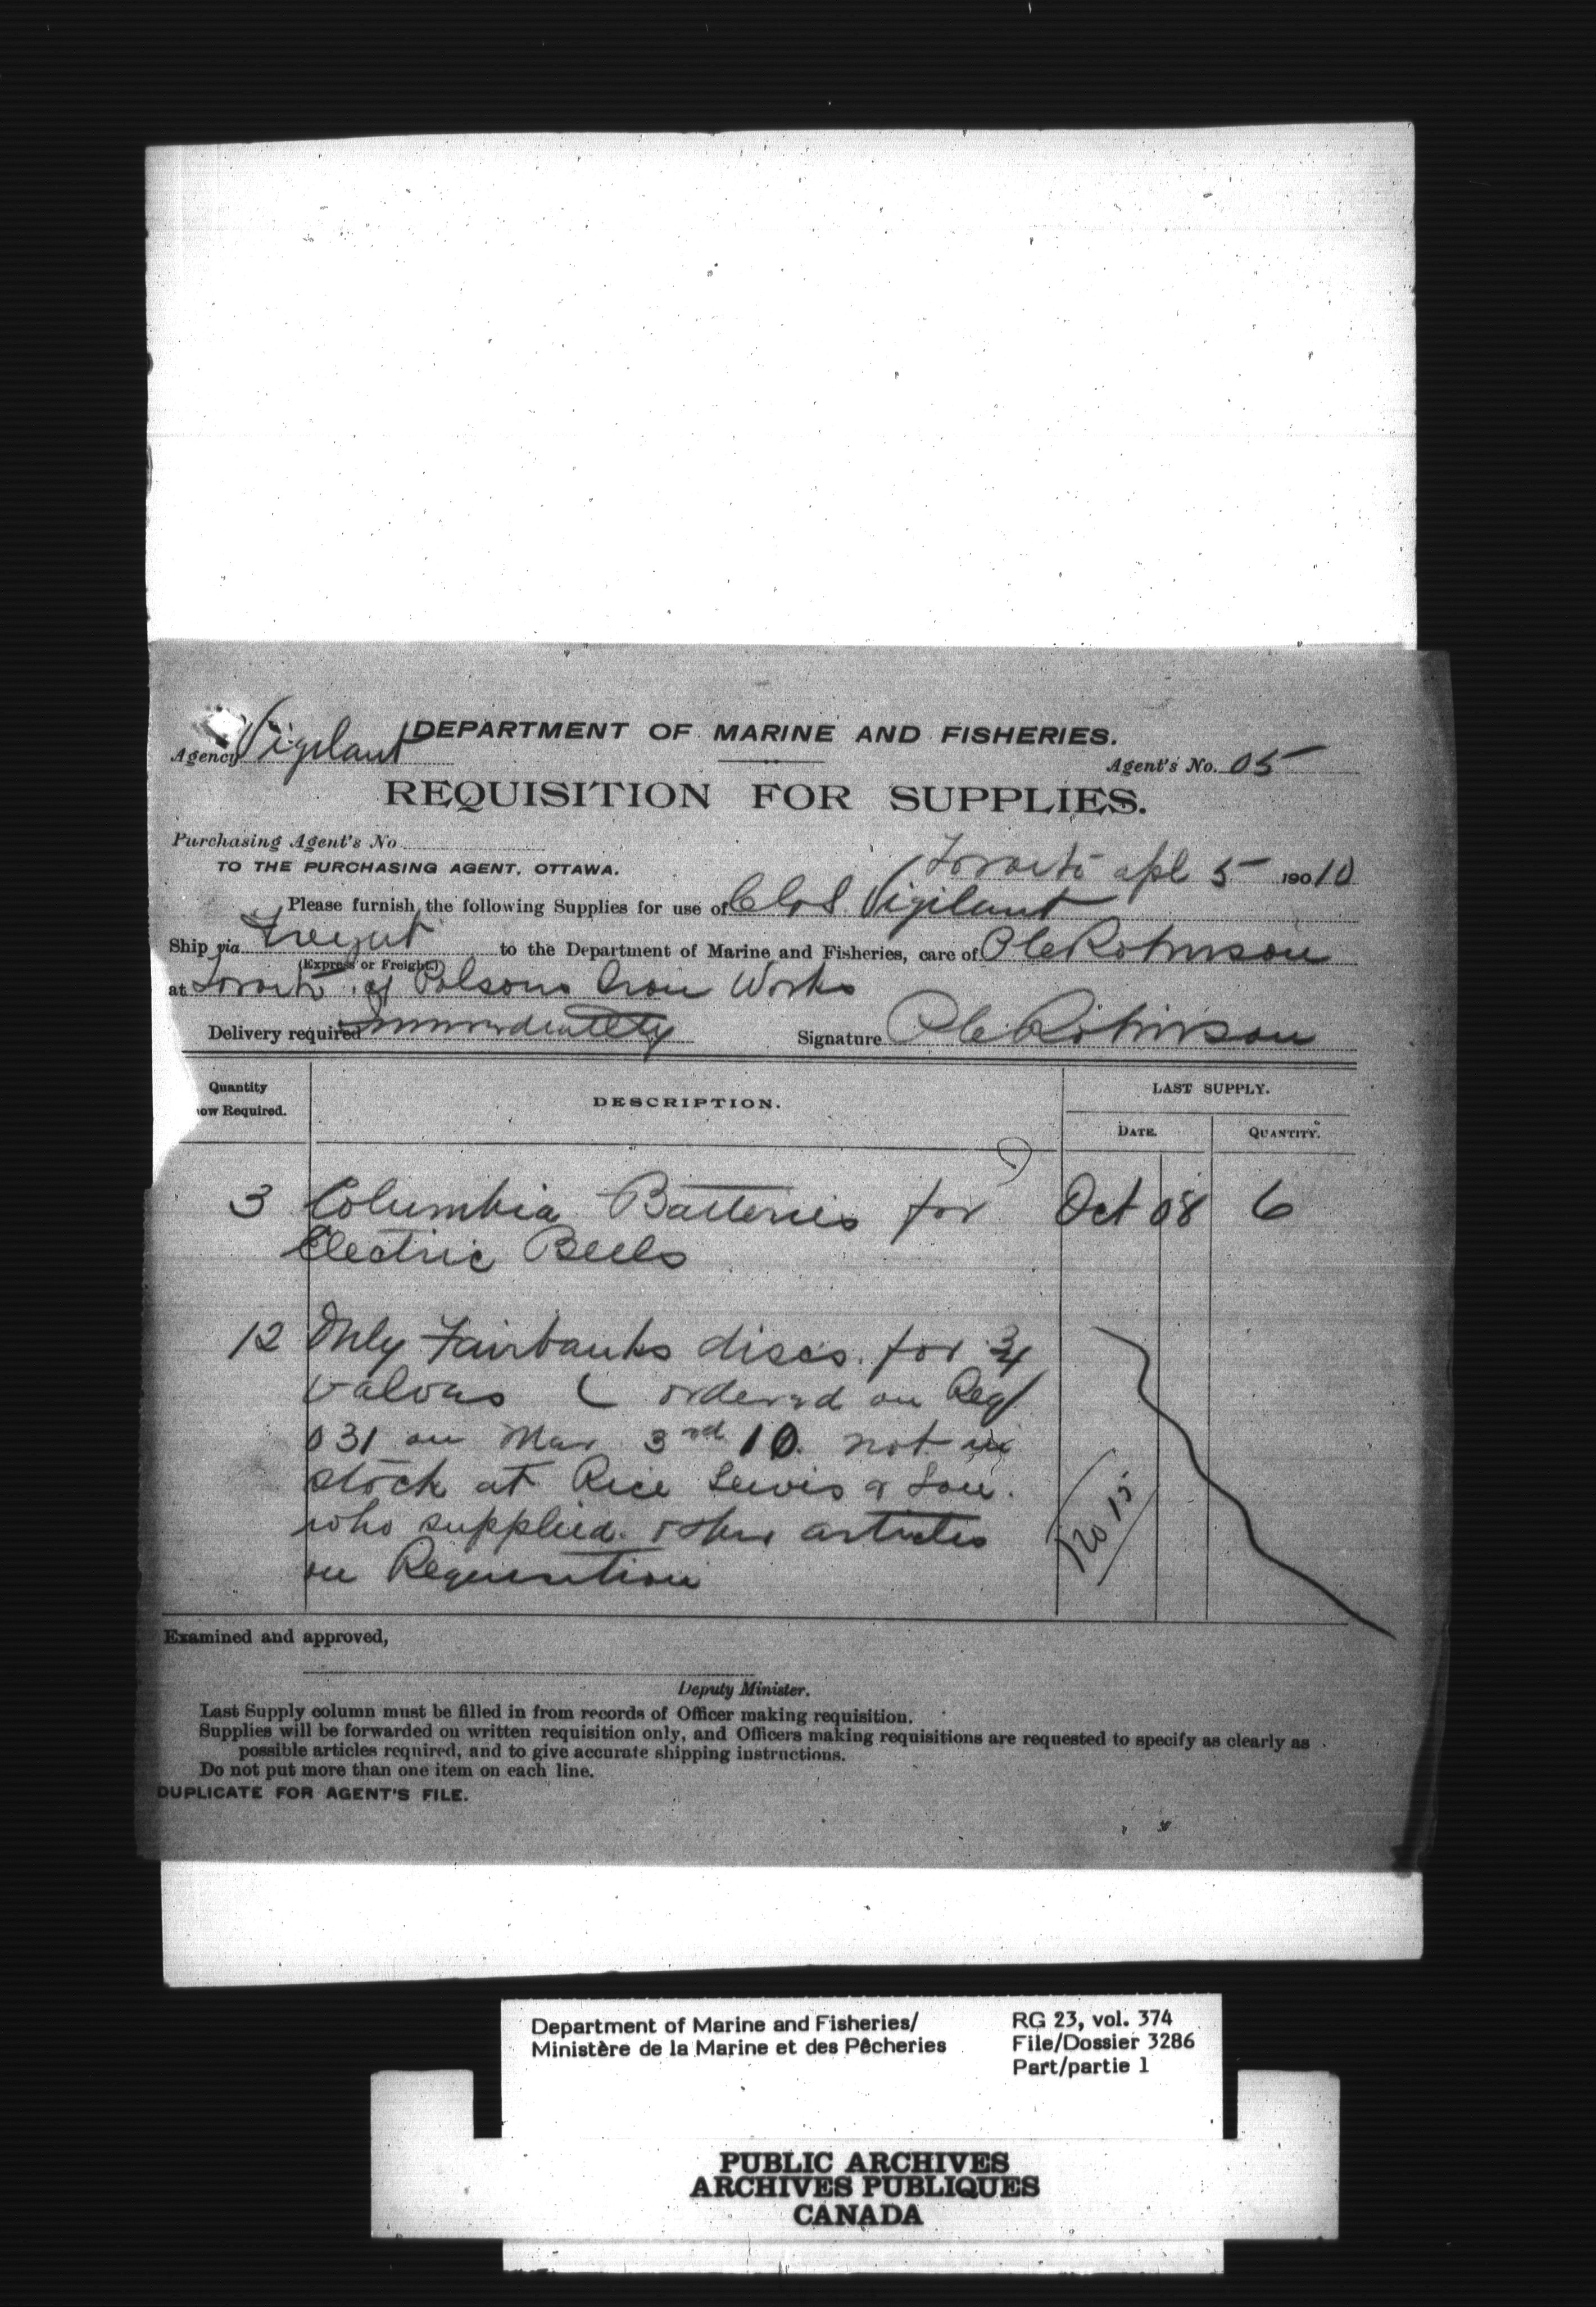 DEPARTMENT OF MARINE AND FISHERIES.
Agency Vigilant
Agent's No. 05
REQUISITION FOR SUPPLIES.
Purchasing Agent's No
TO THE PURCHASING AGENT, OTTAWA.
Toronto apl 5 19010
Please furnish the following Supplies for use of Vigilant
Ship via to the Department of Marine and Fisheries, care of Robinson
(Express or Freight.)
at Toronto Polsons Iron Works
Delivery required Signature Robinson
Quantity
now Required.
DESCRIPTION.
LAST SUPPLY.
DATE.
QUANTITY.
3 Columbia Batteries for Oct 08 6
Electric Bells
12 Only Fairbanks discs for 3/4
valves ( ordered on Req/
031 on Mar 3rd 10. not in
stock at Rice Lewis & Son.
who supplied other articles
on Requisition
No 15
Examined and approved,
Deputy Minister.
Last Supply column must be filled in from records of Officer making requisition.
Supplies will be forwarded on written requisition only, and Officers making requisitions are requested to specify as clearly as
possible articles required, and to give accurate shipping instructions.
Do not put more than one item on each line.
DUPLICATE FOR AGENT'S FILE.
Department of Marine and Fisheries/
Ministère de la Marine et des Pêcheries
RG 23, vol. 374
File/Dossier 3286
Part/partie 1
PUBLIC ARCHIVES
ARCHIVES PUBLIQUES
CANADA